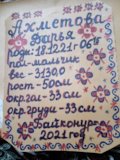 Ахметова
Дарья
род: 18.12.21-06:11
пол-мальчик
вес-3130,0
рост-50см
окр.гол-33см
окр.груди-33см
г.Байконур
2021 год